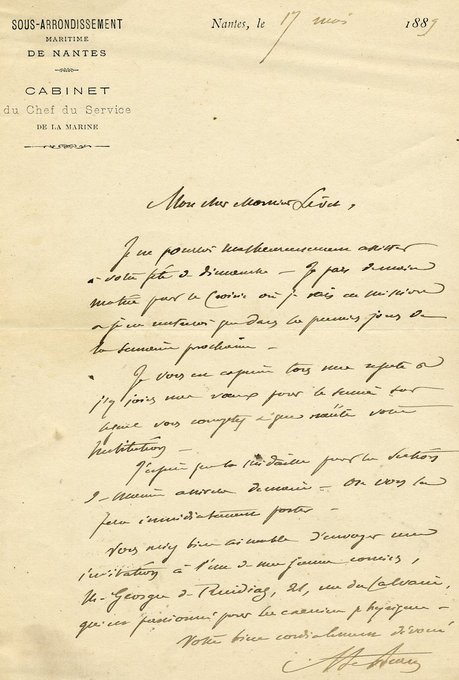 SOUS-ARRONDISSEMENT
MARITIME
DE NANTES
CABINET
du Chef du Service
DE LA MARINE
Nantes, le 17 mai 1889
Mon cher Monsieur
Je ne pourrai malheureusement assister
à votre fête de dimanche — Je pars demain
matin pour le Croisic où je vais en mission
et je ne rentrerai que dans les premiers jours de
la semaine prochaine —
Je vous en exprime tous mes regrets et
j'y joins mes vœux pour le succès sur
lequel vous comptez
Institution —
J'espère que la médaille pour la
arrivera demain — On vous la
fera immédiatement porter —
Vous seriez bien aimable d'envoyer une
invitation à l'un de mes jeunes commis,
M. Georges de, 21, rue du Calvaire,
qui est passionné pour les exercices physiques —
Votre bien cordialement dévoué